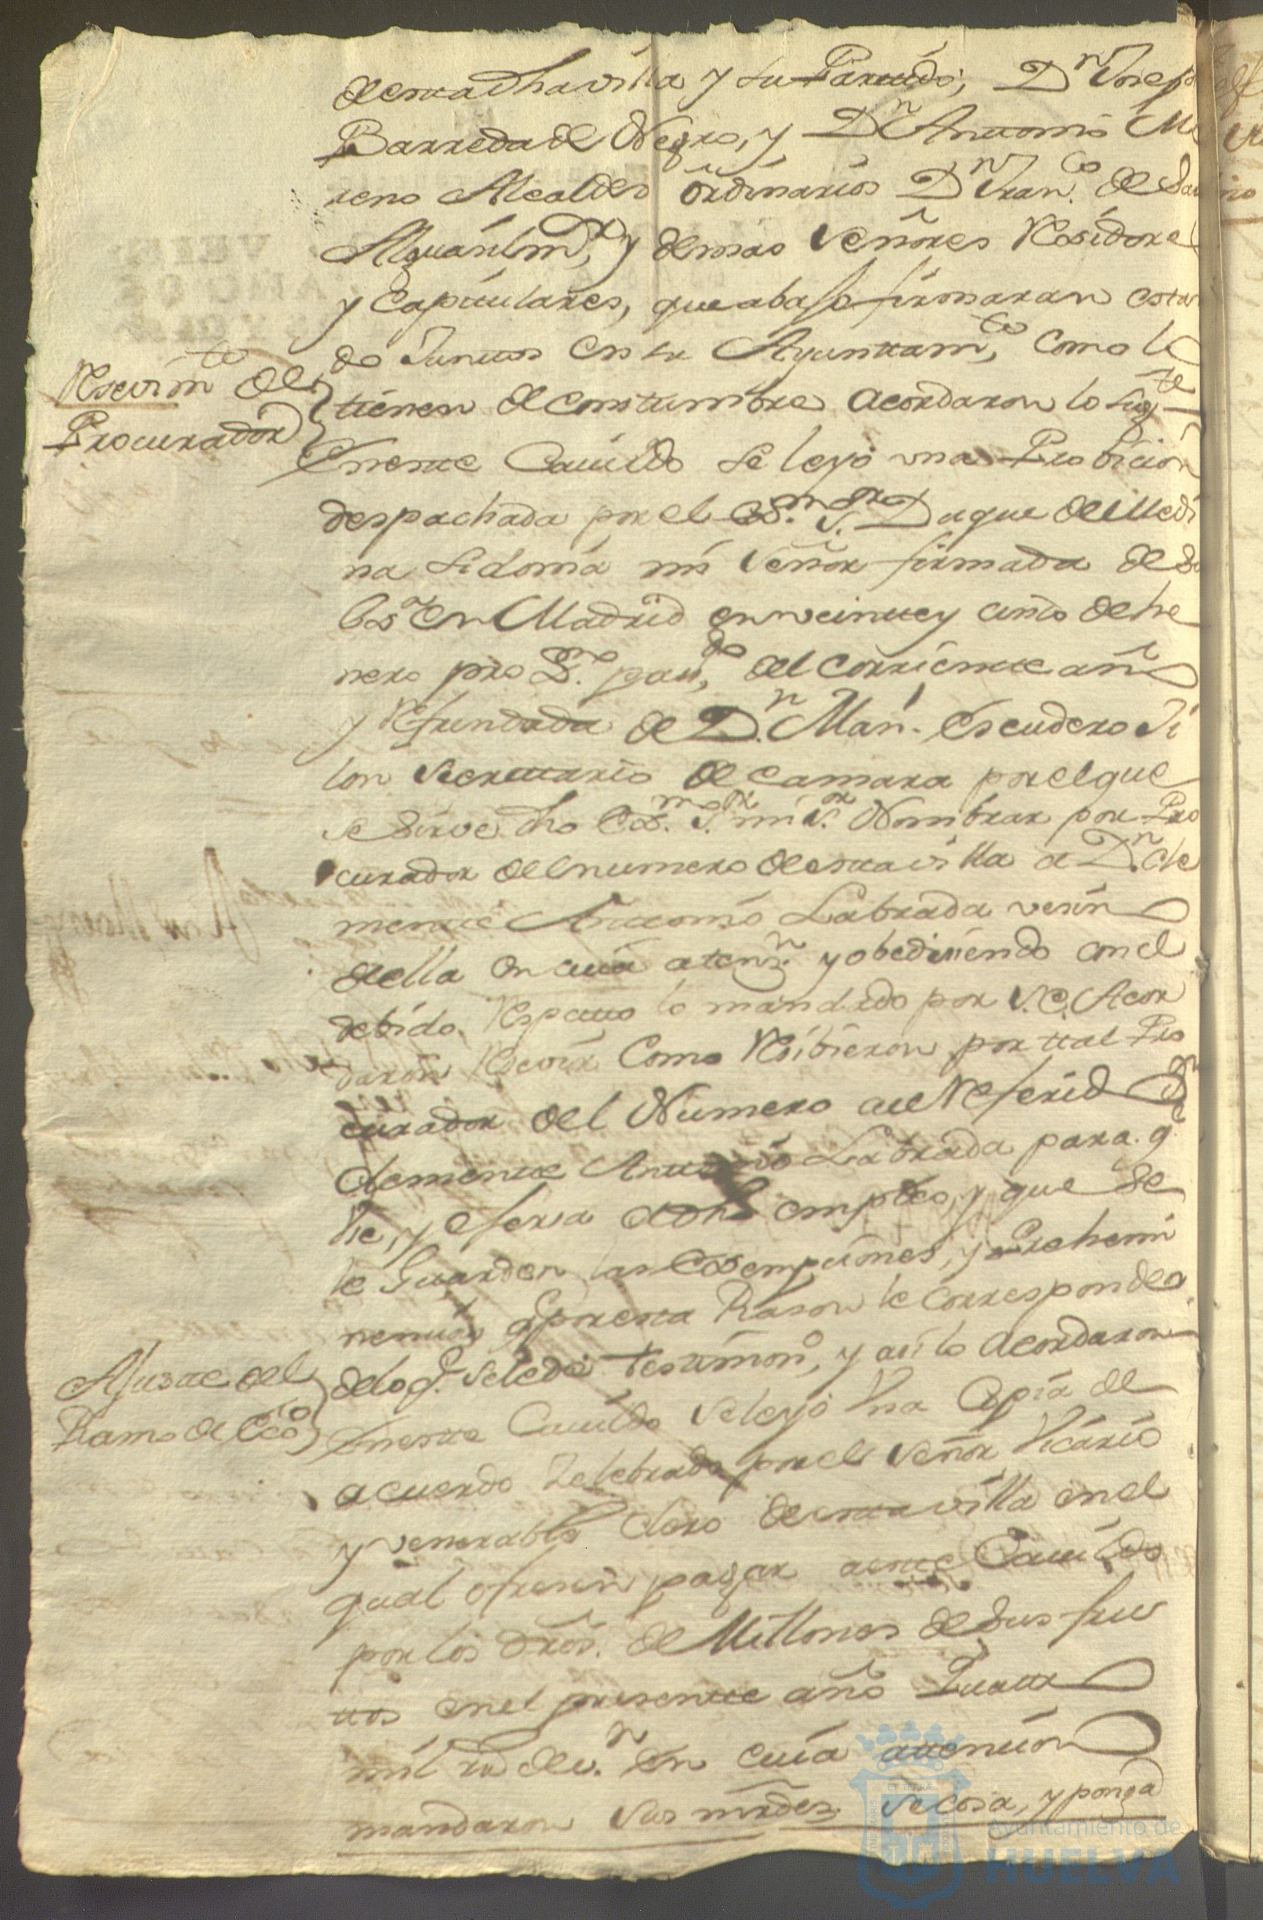 de esta dha villa y su Partido, Dn Josep
Barreda el Negro, y Dn Antonio Mo
reno Alcaldes ordinarios Dn Franco de
Alguasil mr, y demas señores Residores
y Capitulares, que abajo firmaran estan
do Juntos en su Ayuntamto, como lo
Resevimto de
Procurador
tienen de constumbre acordaron lo sigte
En este Cavildo se leyo una Probicion
despachada por el Exmo Sr Duque de Medi
na Sidonia mi señor firmada de su
Exa en Madrid en veinte y cinco de he
nero pro Po pasdo, del corriente año
y Refrendada de Dn Man. Escudero Ji
lon Secretario de Camara por el que
se sirve dho Exmo Sr mi Sr Nombrar por Pro
curador del numero de esta villa a Dn Cle
mente Antonio Labrada vesin
de ella en cuia atenn y obedisiendo con el
debido Respecto lo mandado por S. E. Acor
daron Resevir como Resibieron por tal Pro
curador del Numero a el Referido Dn
Clemente Antonio Labrada para q
Vse, y exersa dho empleo, y que se
le Guarden las Exsempciones, y Prehemi
nencias q por esta Rason le corresponden
de lo q. se le de testimono, y asi lo acordaron
Ajuste del
Ramo de Eco
En este Cavildo se leyo Vna Copia de
acuerdo zelebrado por el señor Vicario
y venerable clero de esta villa en el
qual ofresen pagar a este Cavildo
por los dros. de Millones de sus fru
tos en el presente año Quatro
mil rs de vn. en cuia attencion
mandaron sus mrdes se cosa, y ponga
Ayuntamiento de
HUELVA